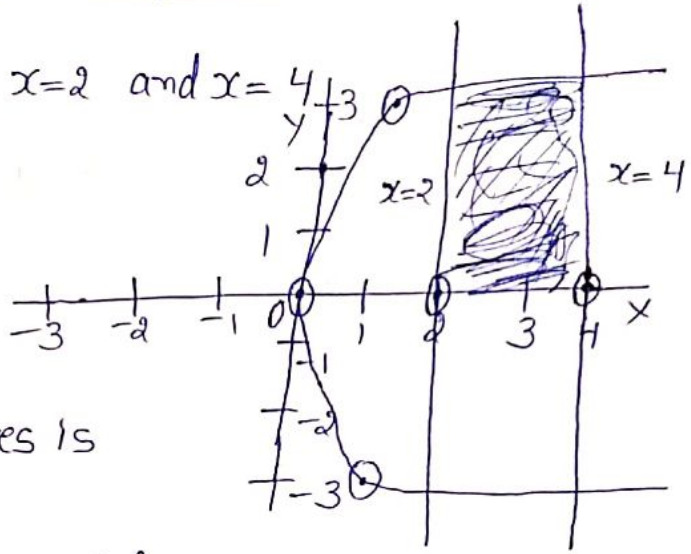 x=2 and x= 4
3
Y
2
x=2
x= 4
1
-3 -2 -1 0 1 2 3 4 X
-1
-2
es is
-3